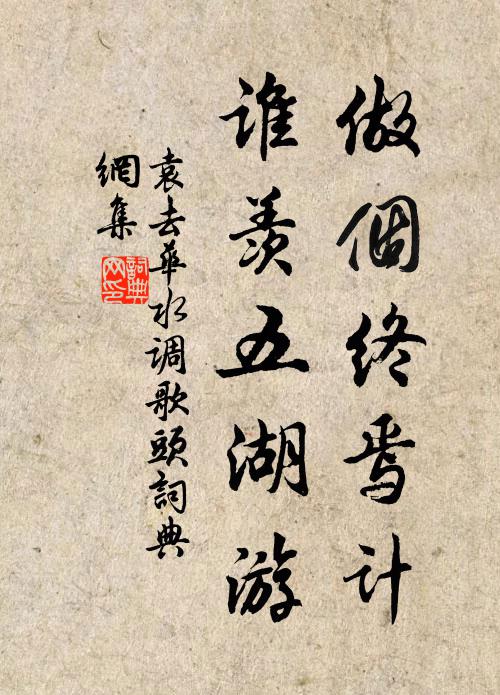 做個終焉計
誰羨五湖游
袁去華水调歌頭詞典
網集
詞典网印